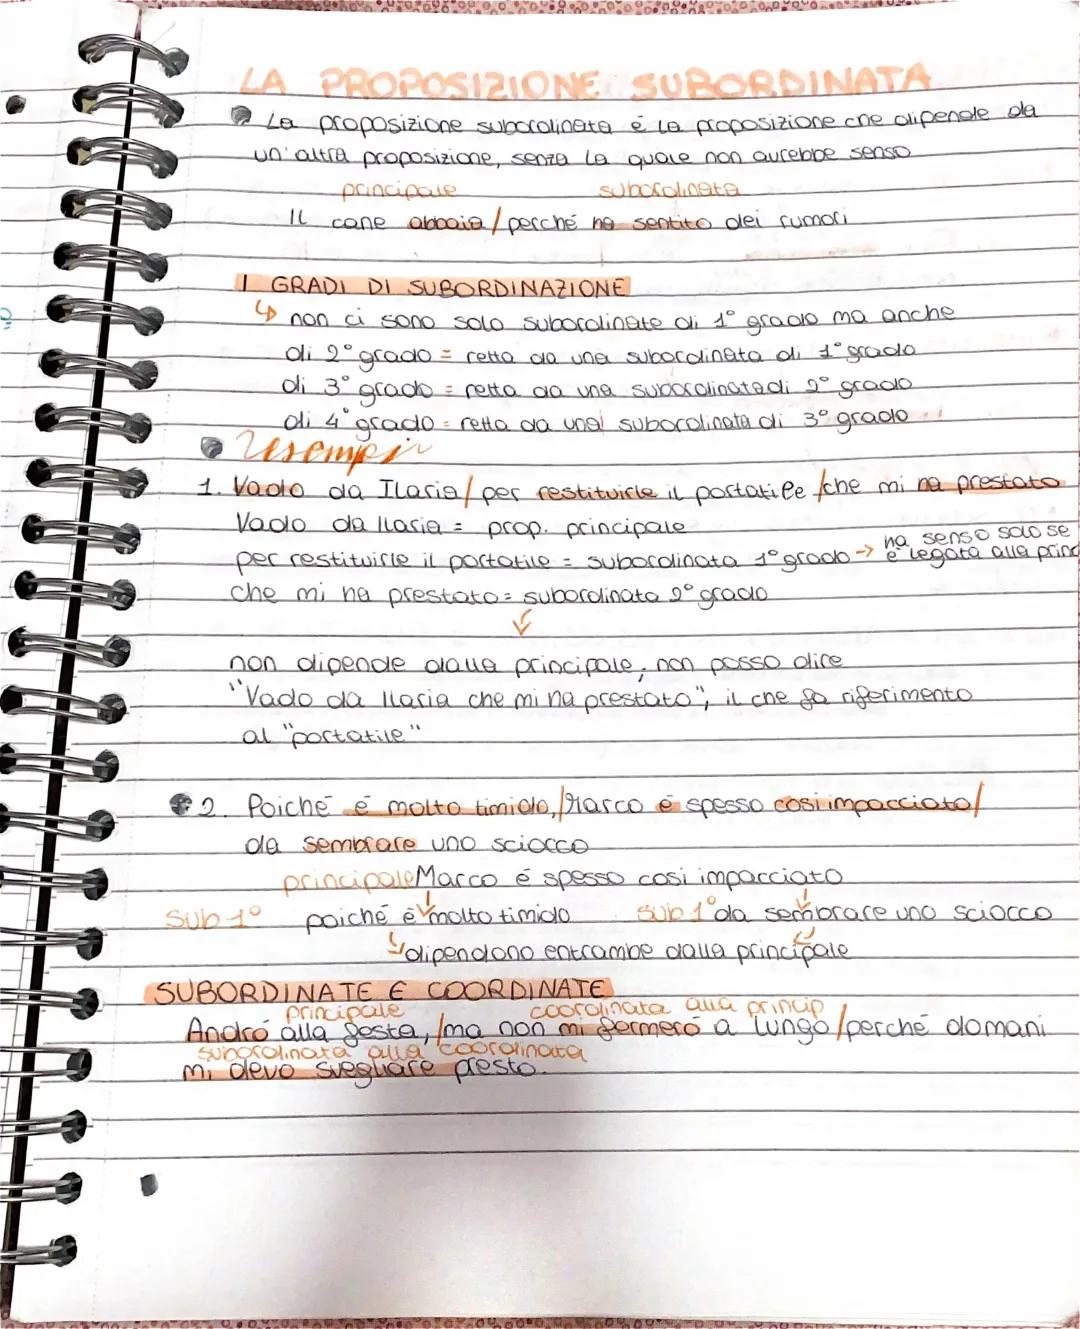 LA PROPOSIZIONE SUBORDINATA
La proposizione subordinata é la proposizione che dipende da
un'altra proposizione, senza la quale non avrebbe senso
principale subordinata
Il cane abbaia / perché ha sentito dei rumori
I GRADI DI SUBORDINAZIONE
↳ non ci sono solo subordinate di 1° grado ma anche
di 2° grado = retta da una subordinata di 1° grado
di 3° grado = retta da una subordinata di 2° grado
di 4° grado = retta da una subordinata di 3° grado
Esempi
1. Vado da Ilaria / per restituirle il portatile / che mi ha prestato
Vado da Ilaria = prop. principale
per restituirle il portatile = subordinata 1° grado → ha senso solo se
é legata alla princ
che mi ha prestato = subordinata 2° grado
non dipende dalla principale, non posso dire
"Vado da Ilaria che mi ha prestato", il che fa riferimento
al "portatile"
2. Poiché é molto timido, / Marco é spesso cosi impacciato /
da sembrare uno sciocco
principale Marco é spesso cosi impacciato
Sub 1° poiché é molto timido sub 1° da sembrare uno sciocco
↳ dipendono entrambe dalla principale
SUBORDINATE E COORDINATE
principale coordinata alla princip
Andró alla festa, / ma non mi fermeró a lungo / perché domani
subordinata alla coordinata
mi devo svegliare presto.